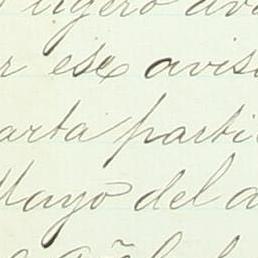 ligero av
r ese avis
arta parti
Mayo del a